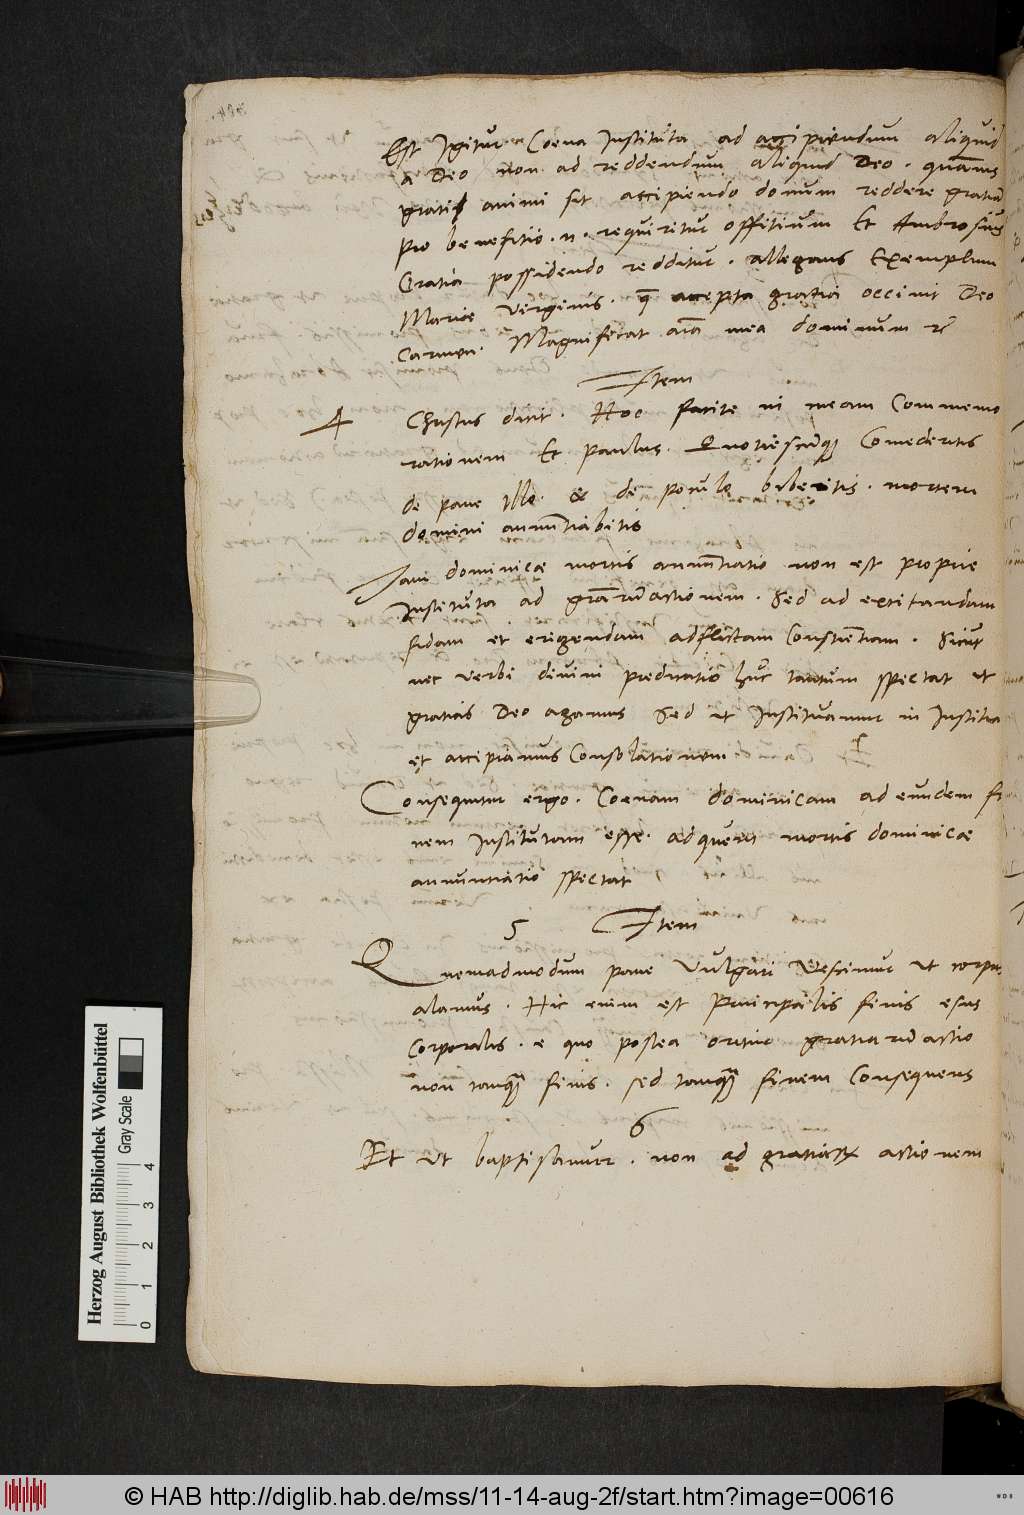 Est Igitur Coena Instituta ad accipiendum aliquid
a Deo non ad reddendum aliquid Deo. quamvis
grati animi sit accipiendo donum reddere gratiam
pro benefitio .n. requiritur offitium Et Ambrosius
Gratia possidendo redditur. allegans Exemplum
Mariae Virginis. quae accepta gratia occinit Deo
Carmen. Magnificat aīa mea dominum
Item
4 Christus dicit. Hoc facite in meam Commemo
rationem Et Paulus. Quotiescunq Comederitis
de pane illo. & de poculo biberitis. mortem
domini annuntiabitis
Iam dominicae mortis annuntiatio non est proprie
Instituta ad grārūactionem. Sed ad excitandam
fidam et erigendam adflictam Conscientiam. Sicut
nec verbi divini predicatio huc tantum spectat ut
gratias Deo agamus Sed ut Instituamur in Justitia
et accipiamus Consolationem
Consequitur ergo. Coenam dominicam ad eundem fi
nem Institutam esse. ad quem mortis dominicae
annuntiatio spectat
5 Item
Quemadmodum pane Vulgari Vescimur ut corpus
alamus. Hic enim est Principalis finis esus
Corporalis. e quo postea oritur gratiarūactio
non tanquā finis. sed tanquā finem Consequens
6
Et ut baptisamur. non ad gratiarum actionem
Herzog August Bibliothek Wolfenbüttel
Gray Scale
0 1 2 3 4
© HAB http://diglib.hab.de/mss/11-14-aug-2f/start.htm?image=00616